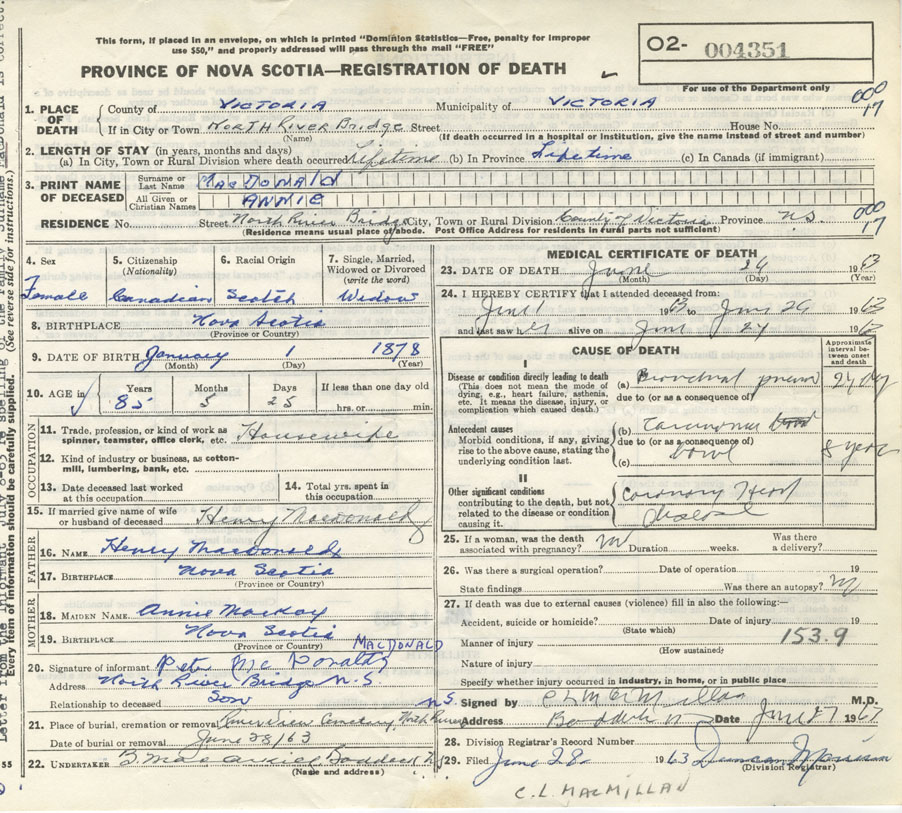 This form, if placed in an envelope, on which is printed "Dominion Statistics—Free, penalty for improper
use $50," and properly addressed will pass through the mail "FREE"
O2- 004351
PROVINCE OF NOVA SCOTIA—REGISTRATION OF DEATH
For use of the Department only
1. PLACE OF DEATH
County of VICTORIA Municipality of VICTORIA
000
17
If in City or Town North River Bridge Street House No.
(Name) (If death occurred in a hospital or institution, give the name instead of street and number)
2. LENGTH OF STAY (in years, months and days)
(a) In City, Town or Rural Division where death occurred Lifetime (b) In Province Lifetime (c) In Canada (if immigrant)
3. PRINT NAME OF DECEASED
Surname or Last Name MacDONALD
All Given or Christian Names ANNIE
RESIDENCE No. Street North River Bridge City, Town or Rural Division County of Victoria Province N.S.
000
17
(Residence means usual place of abode. Post Office Address for residents in rural parts not sufficient)
4. Sex
Female
5. Citizenship (Nationality)
Canadian
6. Racial Origin
Scotch
7. Single, Married, Widowed or Divorced (write the word)
Widow
8. BIRTHPLACE Nova Scotia
(Province or Country)
9. DATE OF BIRTH January 1 1878
(Month) (Day) (Year)
10. AGE in Years Months Days If less than one day old
85 5 25 hrs. or min.
OCCUPATION
11. Trade, profession, or kind of work as spinner, teamster, office clerk, etc. Housewife
12. Kind of industry or business, as cotton-mill, lumbering, bank, etc.
13. Date deceased last worked at this occupation
14. Total yrs. spent in this occupation
15. If married give name of wife or husband of deceased Henry Macdonald
FATHER
16. NAME Henry Macdonald
17. BIRTHPLACE Nova Scotia
(Province or Country)
MOTHER
18. MAIDEN NAME Annie Mackay
19. BIRTHPLACE Nova Scotia
(Province or Country) MACDONALD
20. Signature of informant Peter McDonald
Address North River Bridge N.S.
Relationship to deceased Son N.S.
21. Place of burial, cremation or removal Cemetery North River
Date of burial or removal June 28/63
22. UNDERTAKER Baddeck
(Name and address)
MEDICAL CERTIFICATE OF DEATH
23. DATE OF DEATH June 26 1963
(Month) (Day) (Year)
24. I HEREBY CERTIFY that I attended deceased from:
June 1 1963 to June 26 1963
and last saw her alive on June 24 1963
CAUSE OF DEATH
Approximate interval between onset and death
I
Disease or condition directly leading to death
(This does not mean the mode of dying, e.g., heart failure, asthenia, etc. It means the disease, injury, or complication which caused death.)
(a) Bronchial
due to (or as a consequence of)
Antecedent causes
Morbid conditions, if any, giving rise to the above cause, stating the underlying condition last.
(b) Carcinoma
due to (or as a consequence of)
(c) bowl
II
Other significant conditions contributing to the death, but not related to the disease or condition causing it.
Coronary Heart
disease
25. If a woman, was the death associated with pregnancy? no Duration weeks. Was there a delivery?
26. Was there a surgical operation? Date of operation 19
State findings Was there an autopsy? no
27. If death was due to external causes (violence) fill in also the following:—
Accident, suicide or homicide? Date of injury 19
(State which)
Manner of injury 153.9
(How sustained)
Nature of injury
Specify whether injury occurred in industry, in home, or in public place
Signed by C L MacMillan M.D.
Address Baddeck Date June 27 1963
28. Division Registrar's Record Number
29. Filed June 28 1963
(Division Registrar)
C.L. MACMILLAN
55
Every item of information should be carefully supplied. (See reverse side for instructions.)